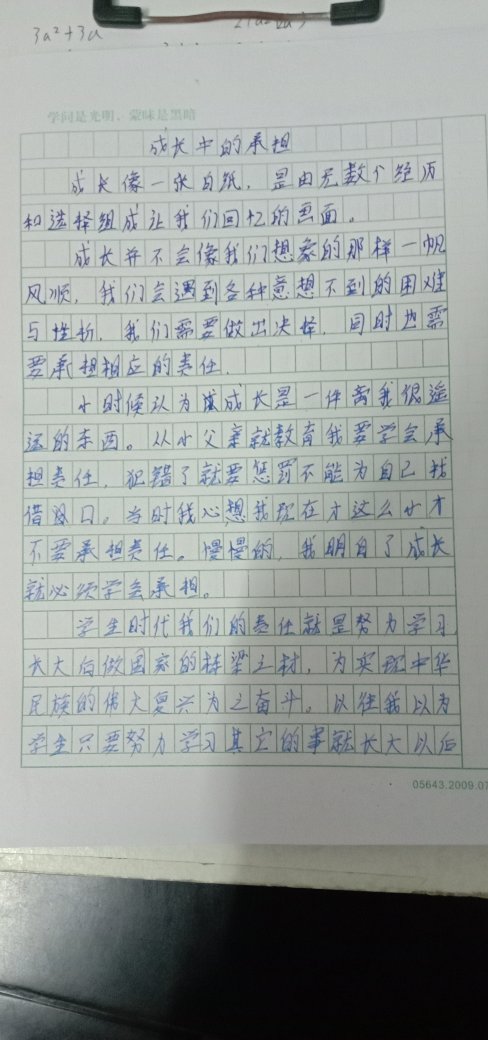 3a²+3a
学问是光明，蒙昧是黑暗
成长中的承担
成长像一张白纸，是由无数个经历
和选择组成让我们回忆的画面。
成长并不会像我们想象的那样一帆
风顺，我们会遇到各种意想不到的困难
与挫折，我们需要做出决择，同时也需
要承担相应的责任，
小时候认为成长是一件离我很遥
远的东西。从小父亲就教育我要学会承
担责任，犯错了就要惩罚不能为自己找
借口。当时我心想我现在才这么小才
不要承担责任。慢慢的，我明白了成长
就必须学会承担。
学生时代我们的责任就是努力学习，
长大后做国家的栋梁之材，为实现中华
民族的伟大复兴为之奋斗。以往我以为
学生只要努力学习其它的事就长大以后
05643.2009.07